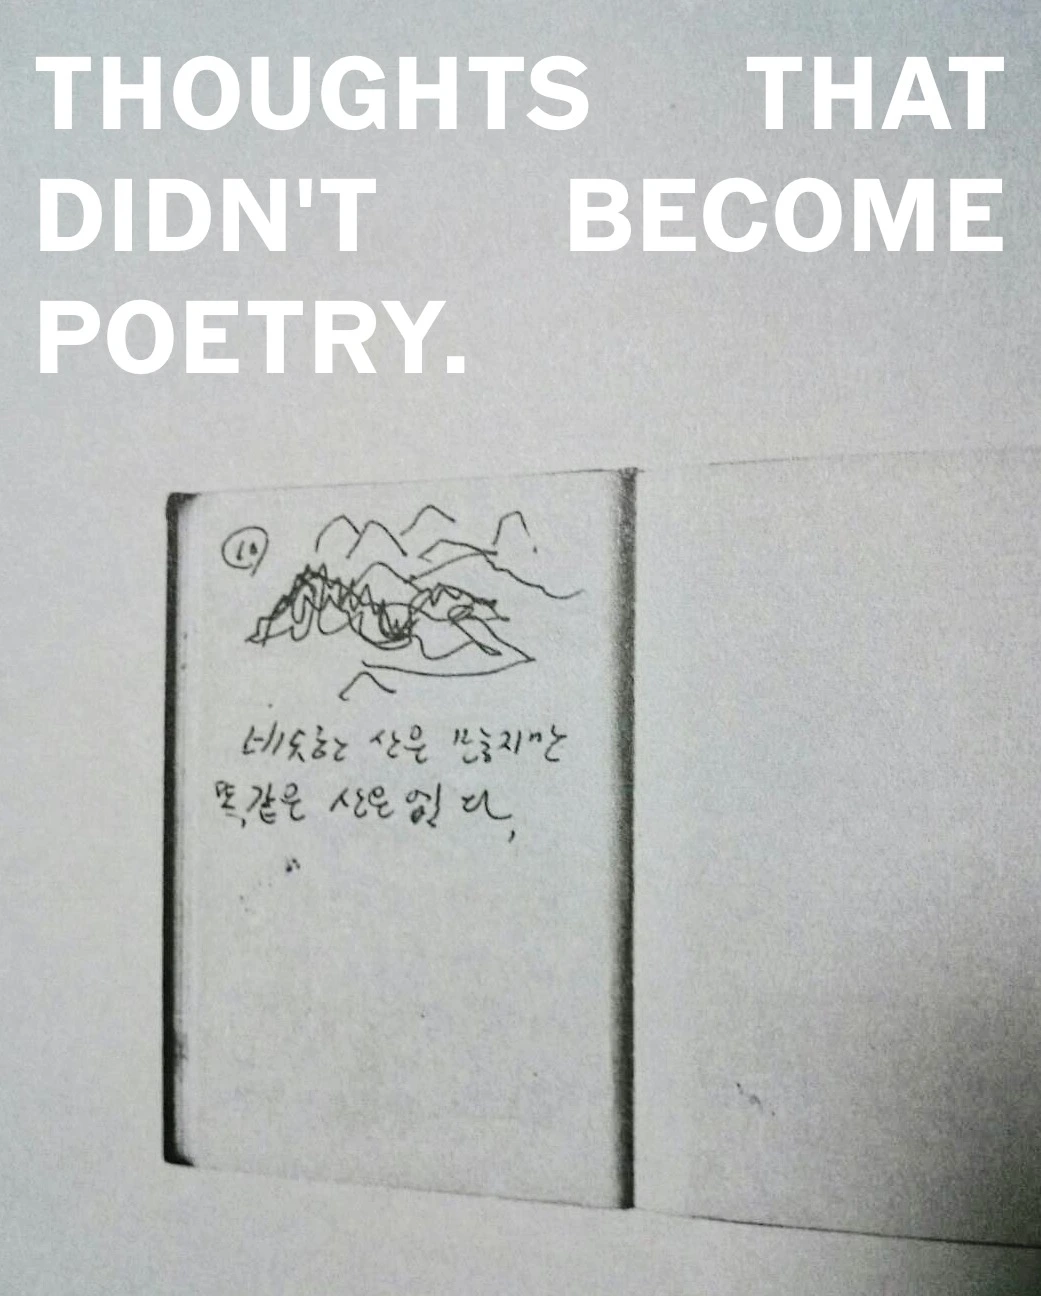 THOUGHTS THAT
DIDN'T BECOME
POETRY.
비슷한 산은 많지만
똑같은 산은 없다,